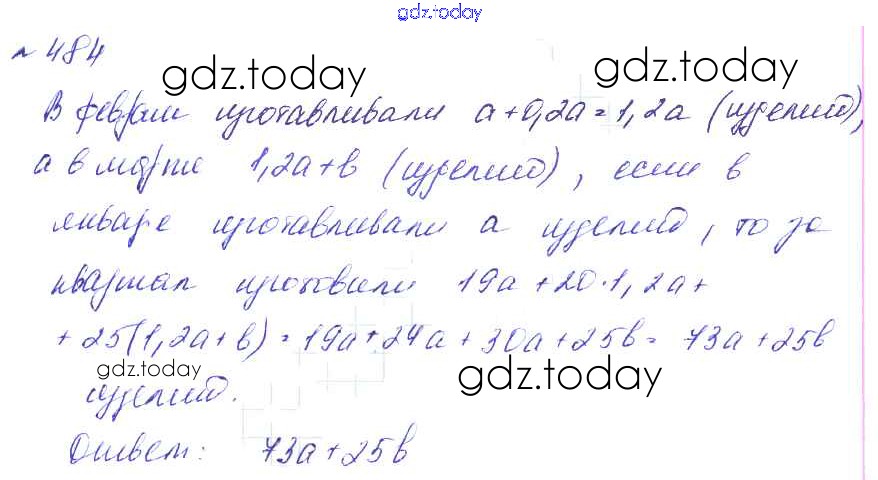 gdz.today
№ 484
gdz.today gdz.today
В феврале изготавливали a+0,2a=1,2a (изделий),
а в марте 1,2a+b (изделий), если в
январе изготавливали a изделий, то за
квартал изготовили 19a+20·1,2a+
+25(1,2a+b)=19a+24a+30a+25b=73a+25b
gdz.today gdz.today
изделий.
Ответ: 73a+25b